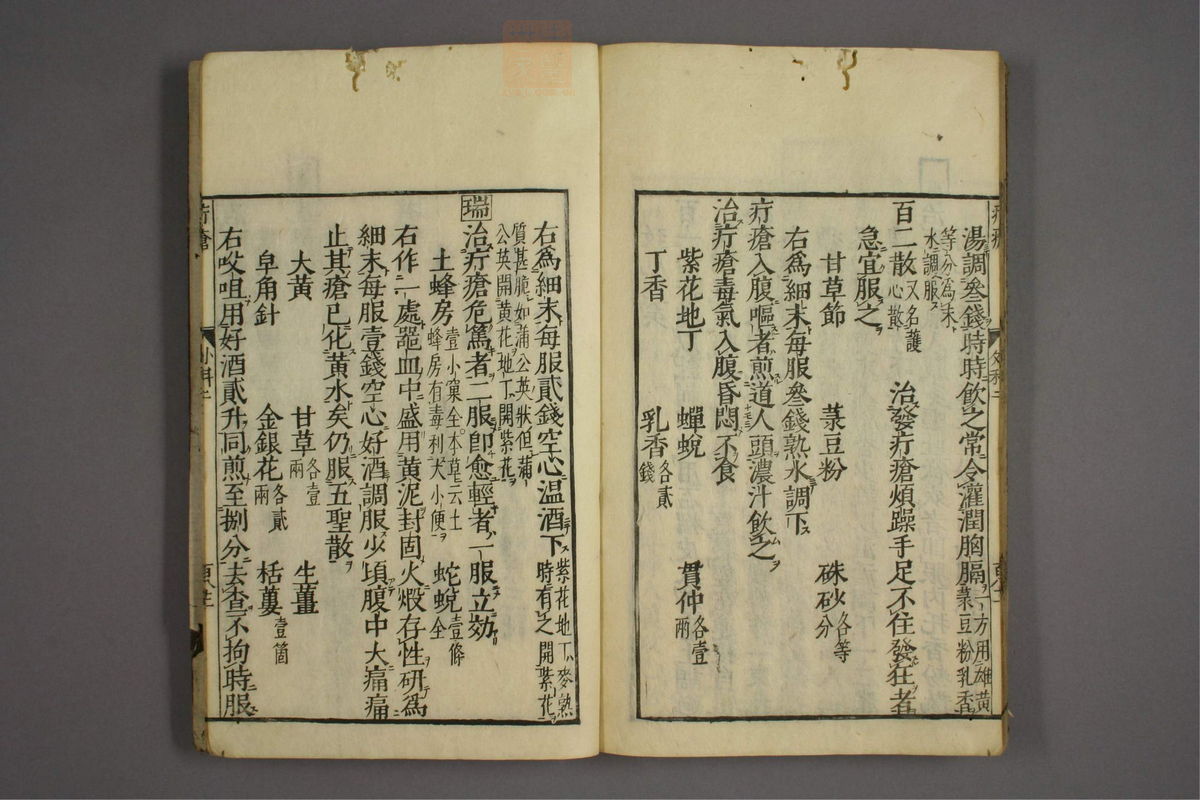 湯調叄錢時時飲之常令灌潤胸膈一方用雄黃菉豆粉乳香
等分為末水調服
百二散又名護心散 治發疔瘡煩躁手足不住發狂者
急宜服之
甘草節 菉豆粉 硃砂各等分
右為細末每服叄錢熟水調下
疔瘡入腹嘔者煎道人頭濃汁飲之
治疔瘡毒氣入腹昏悶不食
紫花地丁 蟬蛻 貫仲各壹兩
丁香 乳香各貳錢
右為細末每服貳錢空心温酒下紫花地丁麥熟時有之開紫花
質甚脆如蒲公英狀但蒲公英開黃花地丁開紫花
瑞 治疔瘡危篤者二服卽愈輕者一服立効
土蜂房壹小窠全本草云土蜂房有毒利大小便 蛇蛻壹條全
右作一處器皿中盛用黃泥封固火煅存性研爲
細末每服壹錢空心好酒調服少頃腹中大痛痛
止其瘡已化黃水矣仍服五聖散
大黃 甘草各壹兩 生薑
皁角針 金銀花各貳兩 栝蔞壹箇
右㕮咀用好酒貳升同煎至捌分去査不拘時服
疔瘡